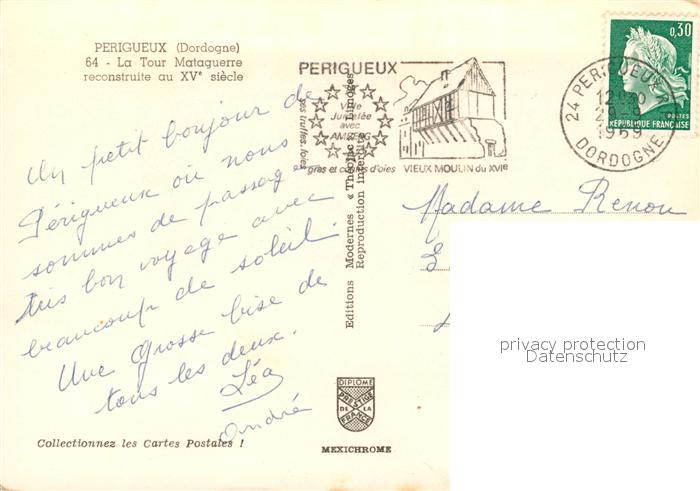 PERIGUEUX (Dordogne)
64 - La Tour Mataguerre
reconstruite au XVe siècle
Un petit bonjour de
Périgueux où nous
sommes de passage
très bon voyage avec
beaucoup de soleil.
Une grosse bise de
tous les deux.
Léa
André
Collectionnez les Cartes Postales !
Editions Modernes « Théojac » Limoges
Reproduction interdite
DIPLOME
PRESTIGE
DE LA
FRANCE
MEXICHROME
PERIGUEUX
Ville
Jumelée
avec
ses truffes, foies
gras et d'oies
VIEUX MOULIN du XVIe
24 PERIGUEUX
1969
DORDOGNE
0,30
POSTES
REPUBLIQUE FRANÇAISE
Madame Renou
privacy protection
Datenschutz